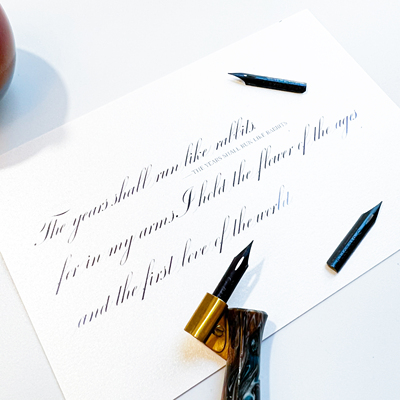 The years shall run like rabbits,
THE YEARS SHALL RUN LIKE RABBITS
for in my arms I hold the flower of the ages
and the first love of the world